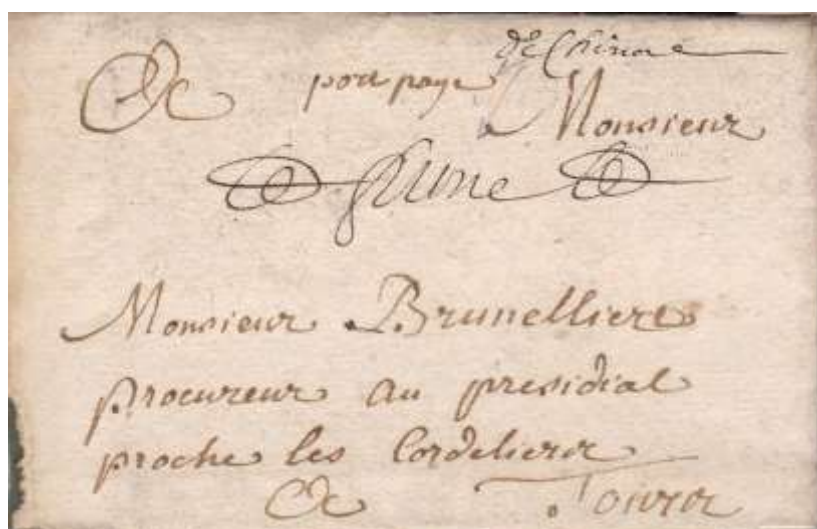 de Chinon
A port payé
a Monsieur
Monsieur Brunelliere
procureur au presidial
proche les Cordeliers
A Tours